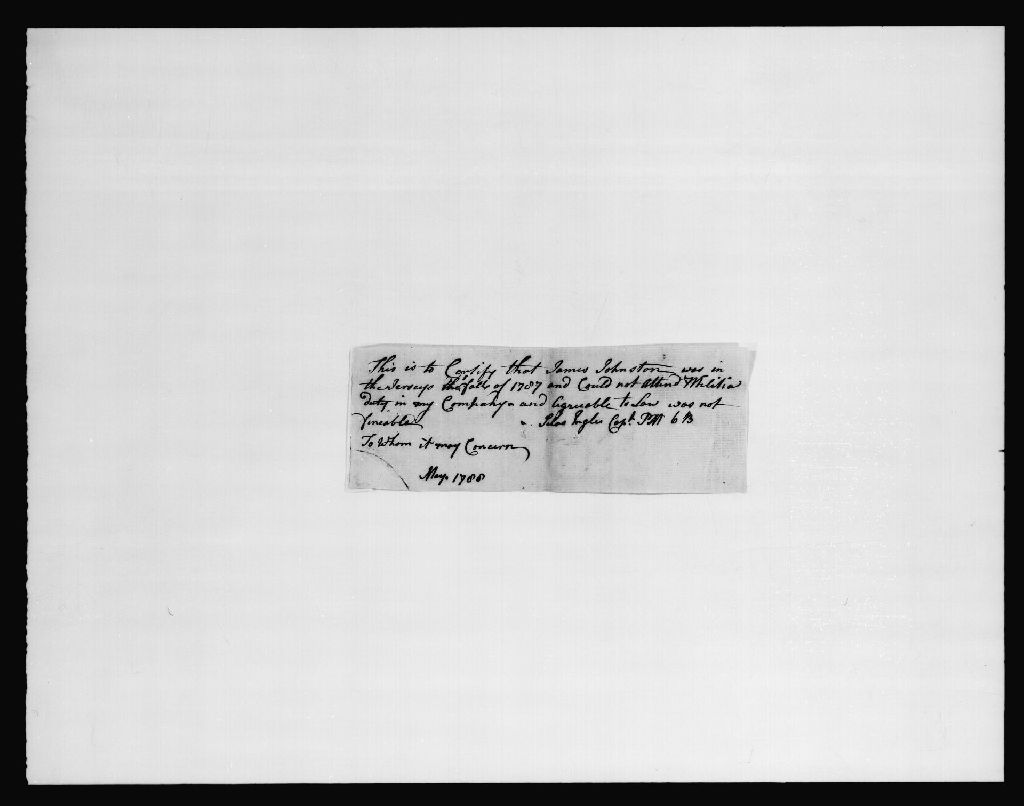 This is to Certify that James Johnston was in
the Jerseys the fall of 1787 and Could not attend Militia
duty in my Company and Agreeable to Law was not
fineable Capt. PM 6 B
To Whom it may Concern
May 1788